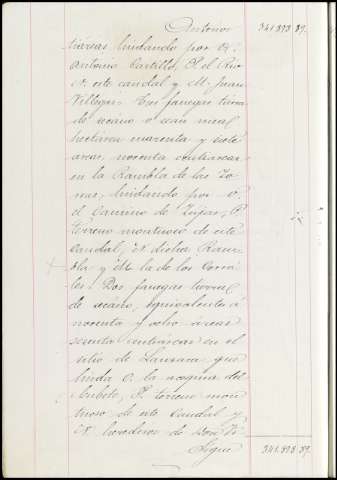 Anterior 341.898 89.
tiáreas lindando por O.
Antonio Castillo, P. el Rio
N. este caudal y M. Juan
Villegas. Tres fanegas tierra
de secano o sean una
hectárea cuarenta y siete
areas noventa centiáreas
en la Rambla de las
lindando por O.
el Camino de Zujar, P.
terreno montuoso de este
Caudal, N. dicha Ram-
bla y M. la de los Corra-
les. Dos fanegas tierra
de secano, equivalente á
noventa y ocho áreas
sesenta centiáreas en el
sitio de que
linda O. la acequia del
P. terreno mon-
tuoso de este Caudal y
N. herederos de Don
Sigue 341.898 89.